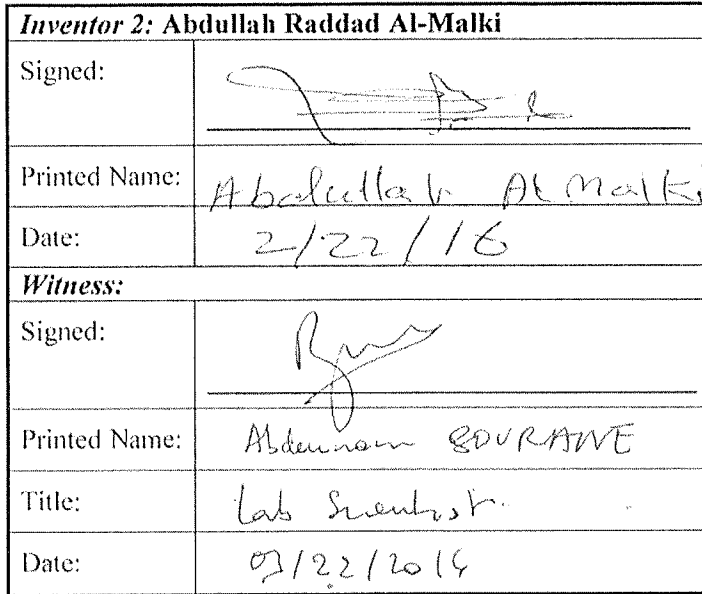 Inventor 2: Abdullah Raddad Al-Malki
Signed:
Printed Name: Abdullah Al Malki
Date: 2/22/16
Witness:
Signed:
Printed Name: BOURANE
Title: Lab Scientist
Date: